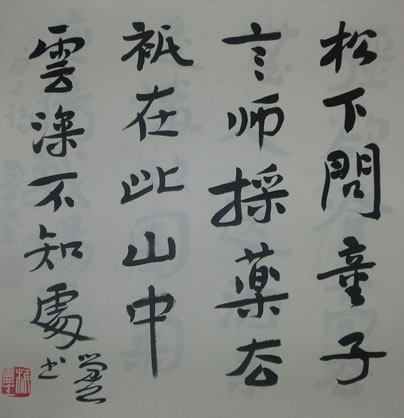 松下問童子
言师採薬去
祇在此山中
雲深不知處
书